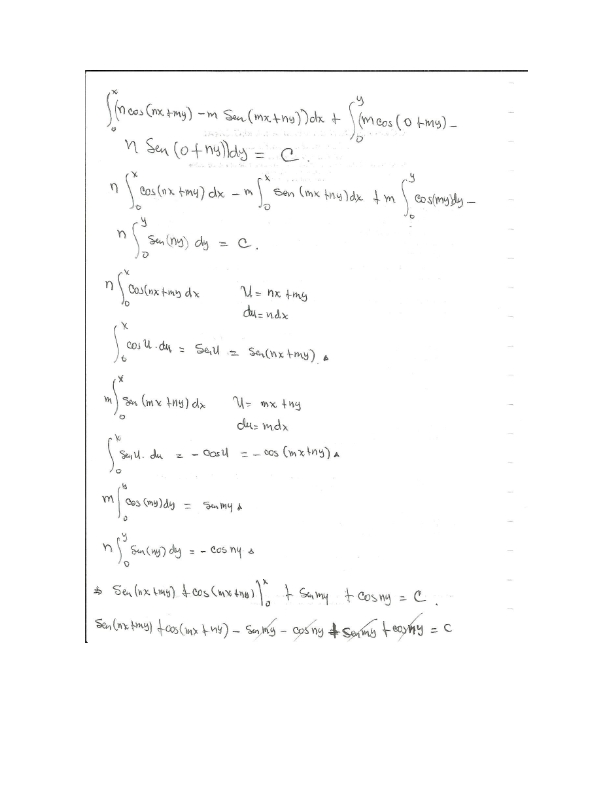 ∫₀ˣ (n cos (nx+my) – m Sen (mx+ny)) dx + ∫₀ʸ (m cos (0+my) –
n Sen (0+ny)) dy = C.
n ∫₀ˣ cos (nx+my) dx – m ∫₀ˣ sen (mx+ny) dx + m ∫₀ʸ cos(my)dy –
n ∫₀ʸ sen (ny) dy = C.
n ∫₀ˣ cos(nx+my dx U = nx+my
du = ndx
∫₀ˣ cos U . du = Sen U = Sen (nx+my).
m ∫₀ˣ Sen (mx+ny) dx U = mx+ny
du = mdx
∫₀ˣ Sen U. du = – cos U = – cos (mx+ny)
m ∫₀ʸ cos (my)dy = sen my
n ∫₀ʸ Sen (ny) dy = – cos ny
⇒ Sen (nx+my) + cos (mx+ny) ]₀ˣ + Sen my + cos ny = C.
Sen (nx+my) + cos (mx+ny) – Sen my – cos ny + Sen my + cos ny = C